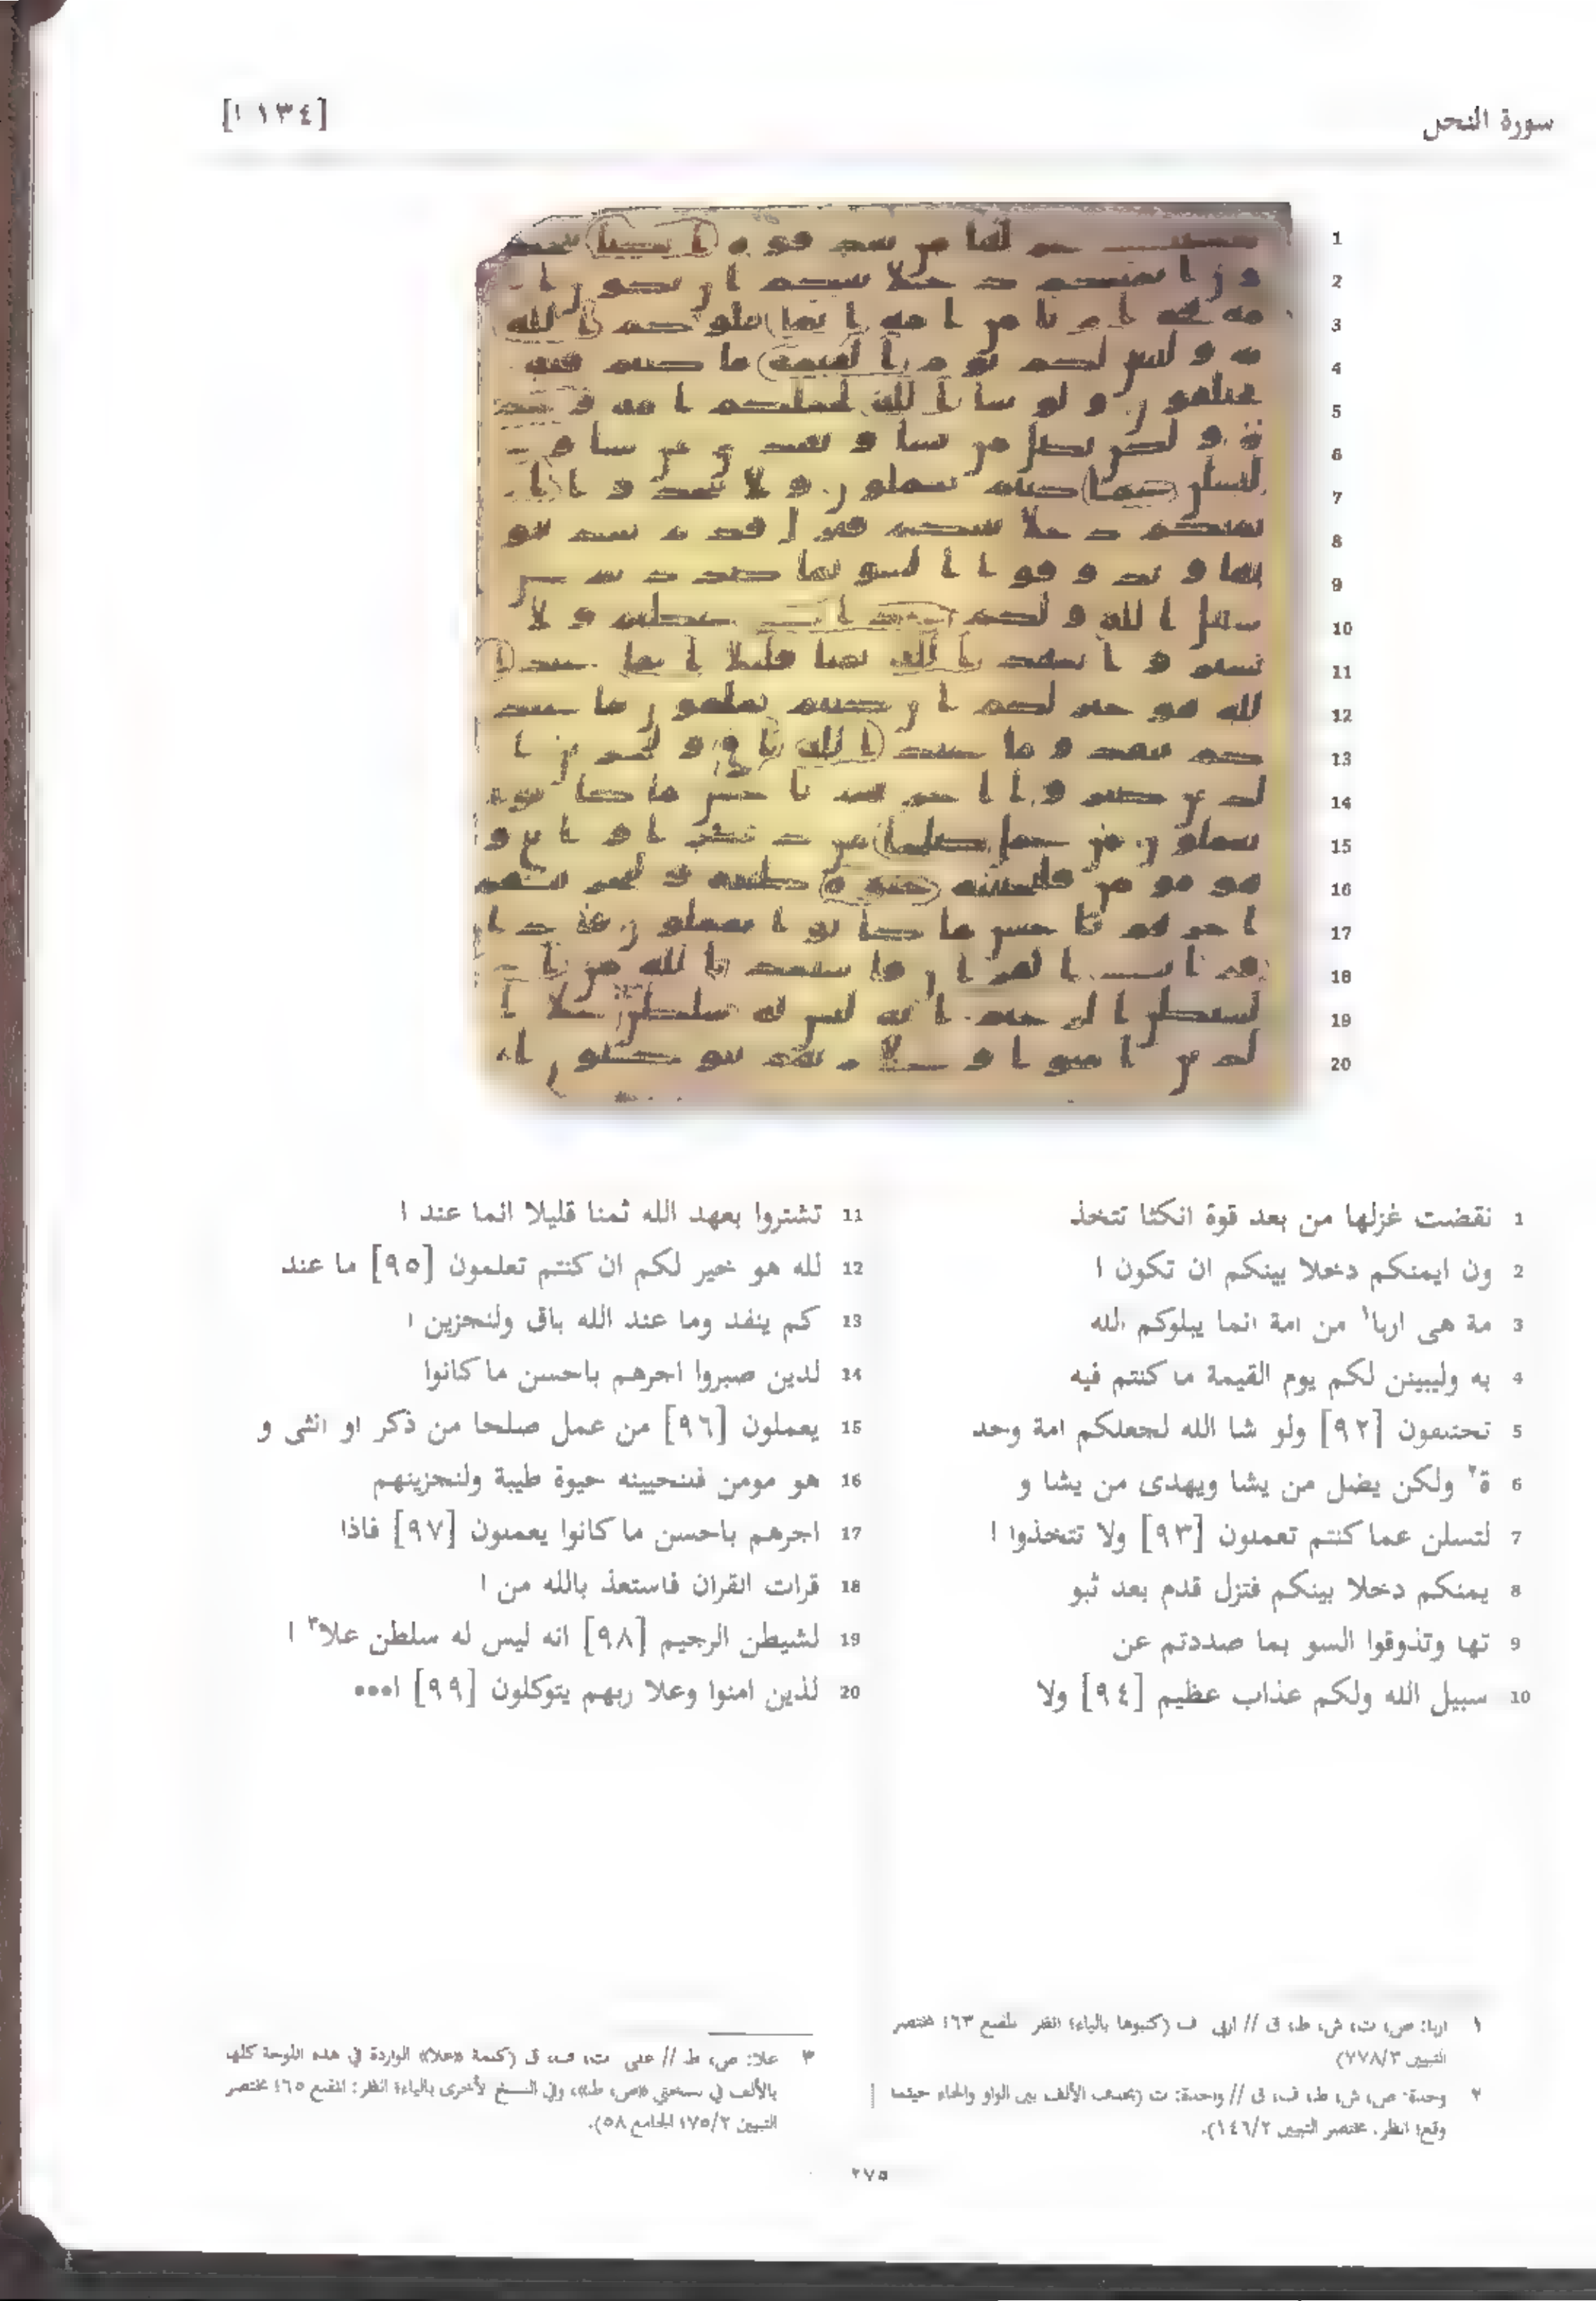 سورة النحل
[١٣٤ ا]
1 نقضت غزلها من بعد قوة انكثا تتخذ
2 ون ايمنكم دخلا بينكم ان تكون ا
3 مة هى اربا١ من امة انما يبلوكم الله
4 به وليبينن لكم يوم القيمة ما كنتم فيه
5 تختلفون [٩٢] ولو شا الله لجعلكم امة وحد
6 ة٢ ولكن يضل من يشا ويهدى من يشا و
7 لتسلن عما كنتم تعملون [٩٣] ولا تتخذوا ا
8 يمنكم دخلا بينكم فتزل قدم بعد ثبو
9 تها وتذوقوا السو بما صددتم عن
10 سبيل الله ولكم عذاب عظيم [٩٤] ولا
11 تشتروا بعهد الله ثمنا قليلا انما عند ا
12 لله هو خير لكم ان كنتم تعلمون [٩٥] ما عند
13 كم ينفد وما عند الله باق ولنجزين ا
14 لذين صبروا اجرهم باحسن ما كانوا
15 يعملون [٩٦] من عمل صلحا من ذكر او انثى و
16 هو مومن فلنحيينه حيوة طيبة ولنجزينهم
17 اجرهم باحسن ما كانوا يعملون [٩٧] فاذا
18 قرات القران فاستعذ بالله من ا
19 لشيطن الرجيم [٩٨] انه ليس له سلطن علا٣ ا
20 لذين امنوا وعلا ربهم يتوكلون [٩٩] ا•••
١ اربا: ص، ت، ش، ط، ق // اربى ف (كتبوها بالياء؛ انظر المقنع ٦٣؛ مختصر
التبيين ٧٧٨/٣)
٢ وحدة: ص، ش، ط، ف، ق // واحدة: ت (بحذف الألف بين الواو والحاء حيثما
وقع؛ انظر: مختصر التبيين ١٤٦/٢).
٣ علا: ص، ط // على ت، ف، ق (كلمة «علا» الواردة في هذه اللوحة كلها
بالألف في نسختي «ص، ط»، وفي النسخ الأخرى بالياء؛ انظر: المقنع ٦٥؛ مختصر
التبيين ٧٥/٢؛ الجامع ٥٨).
٢٧٥